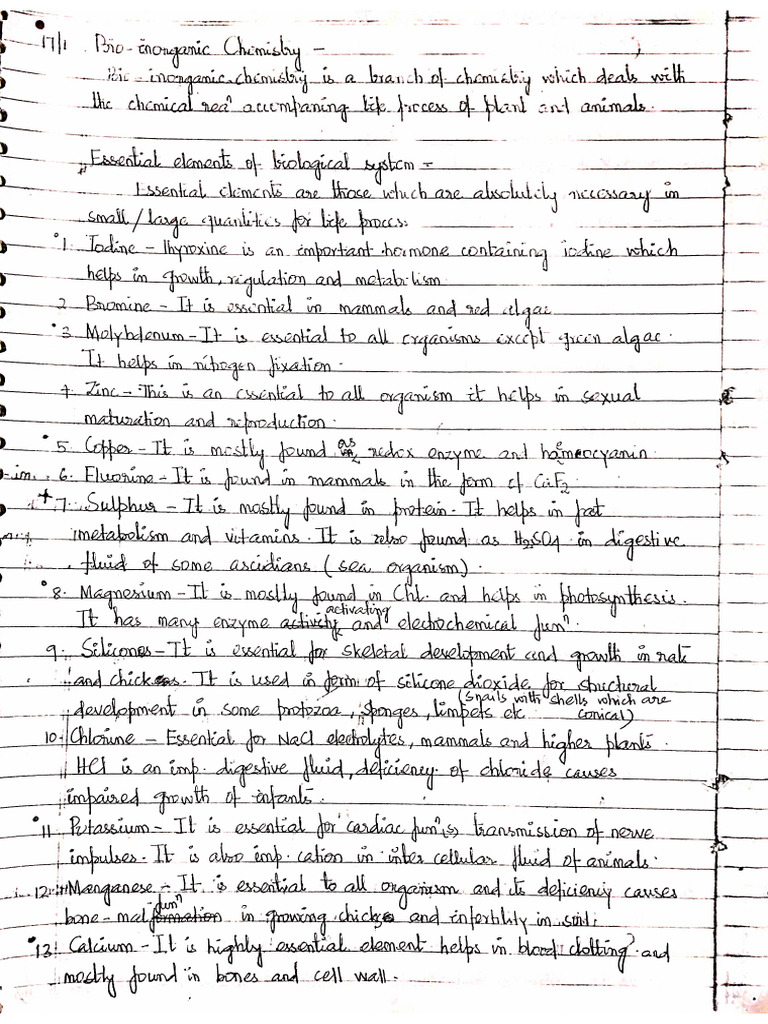 17/1 Bio-inorganic Chemistry -
Bio-inorganic chemistry is a branch of chemistry which deals with
the chemical reaⁿ accompaning life process of plant and animals.
Essential elements of biological system -
Essential elements are those which are absolutily necessary in
small/large quantities for life process.
1. Iodine - Thyroxine is an important hormone containing iodine which
helps in growth, regulation and metabolism.
2. Bromine - It is essential in mammals and red algae
3. Molybdenum - It is essential to all organisms except green algae.
It helps in nitrogen fixation.
4. Zinc - This is an essential to all organism it helps in sexual
maturation and reproduction.
5. Copper - It is mostly found as redox enzyme and haemocyanin
-im. 6. Fluorine - It is found in mammals in the form of CaF2
+ 7. Sulphur - It is mostly found in protein. It helps in fat
metabolism and vitamins. It is also found as H2SO4 in digestive
fluid of some ascidians (sea organism).
8. Magnesium - It is mostly found in Chl. and helps in photosynthesis.
activating
It has many enzyme activity and electrochemical funⁿ.
9. Silicones - It is essential for skeletal development and growth in rats
and chickens. It is used in form of silicone dioxide for structural
(snails with shells which are
development in some protozoa, sponges, limpets etc conical)
10. Chlorine - Essential for NaCl electrolytes, mammals and higher plants.
HCl is an imp. digestive fluid, deficiency of chloride causes
impaired growth of infants.
11. Potassium - It is essential for cardiac funⁿ(s) transmission of nerve
impulses. It is also imp. cation in inter cellular fluid of animals.
12. Manganese - It is essential to all organism and its deficiency causes
funⁿ
bone-malformation in growing chicks and infertility in
13. Calcium - It is highly essential element helps in blood clotting and
mostly found in bones and cell wall.